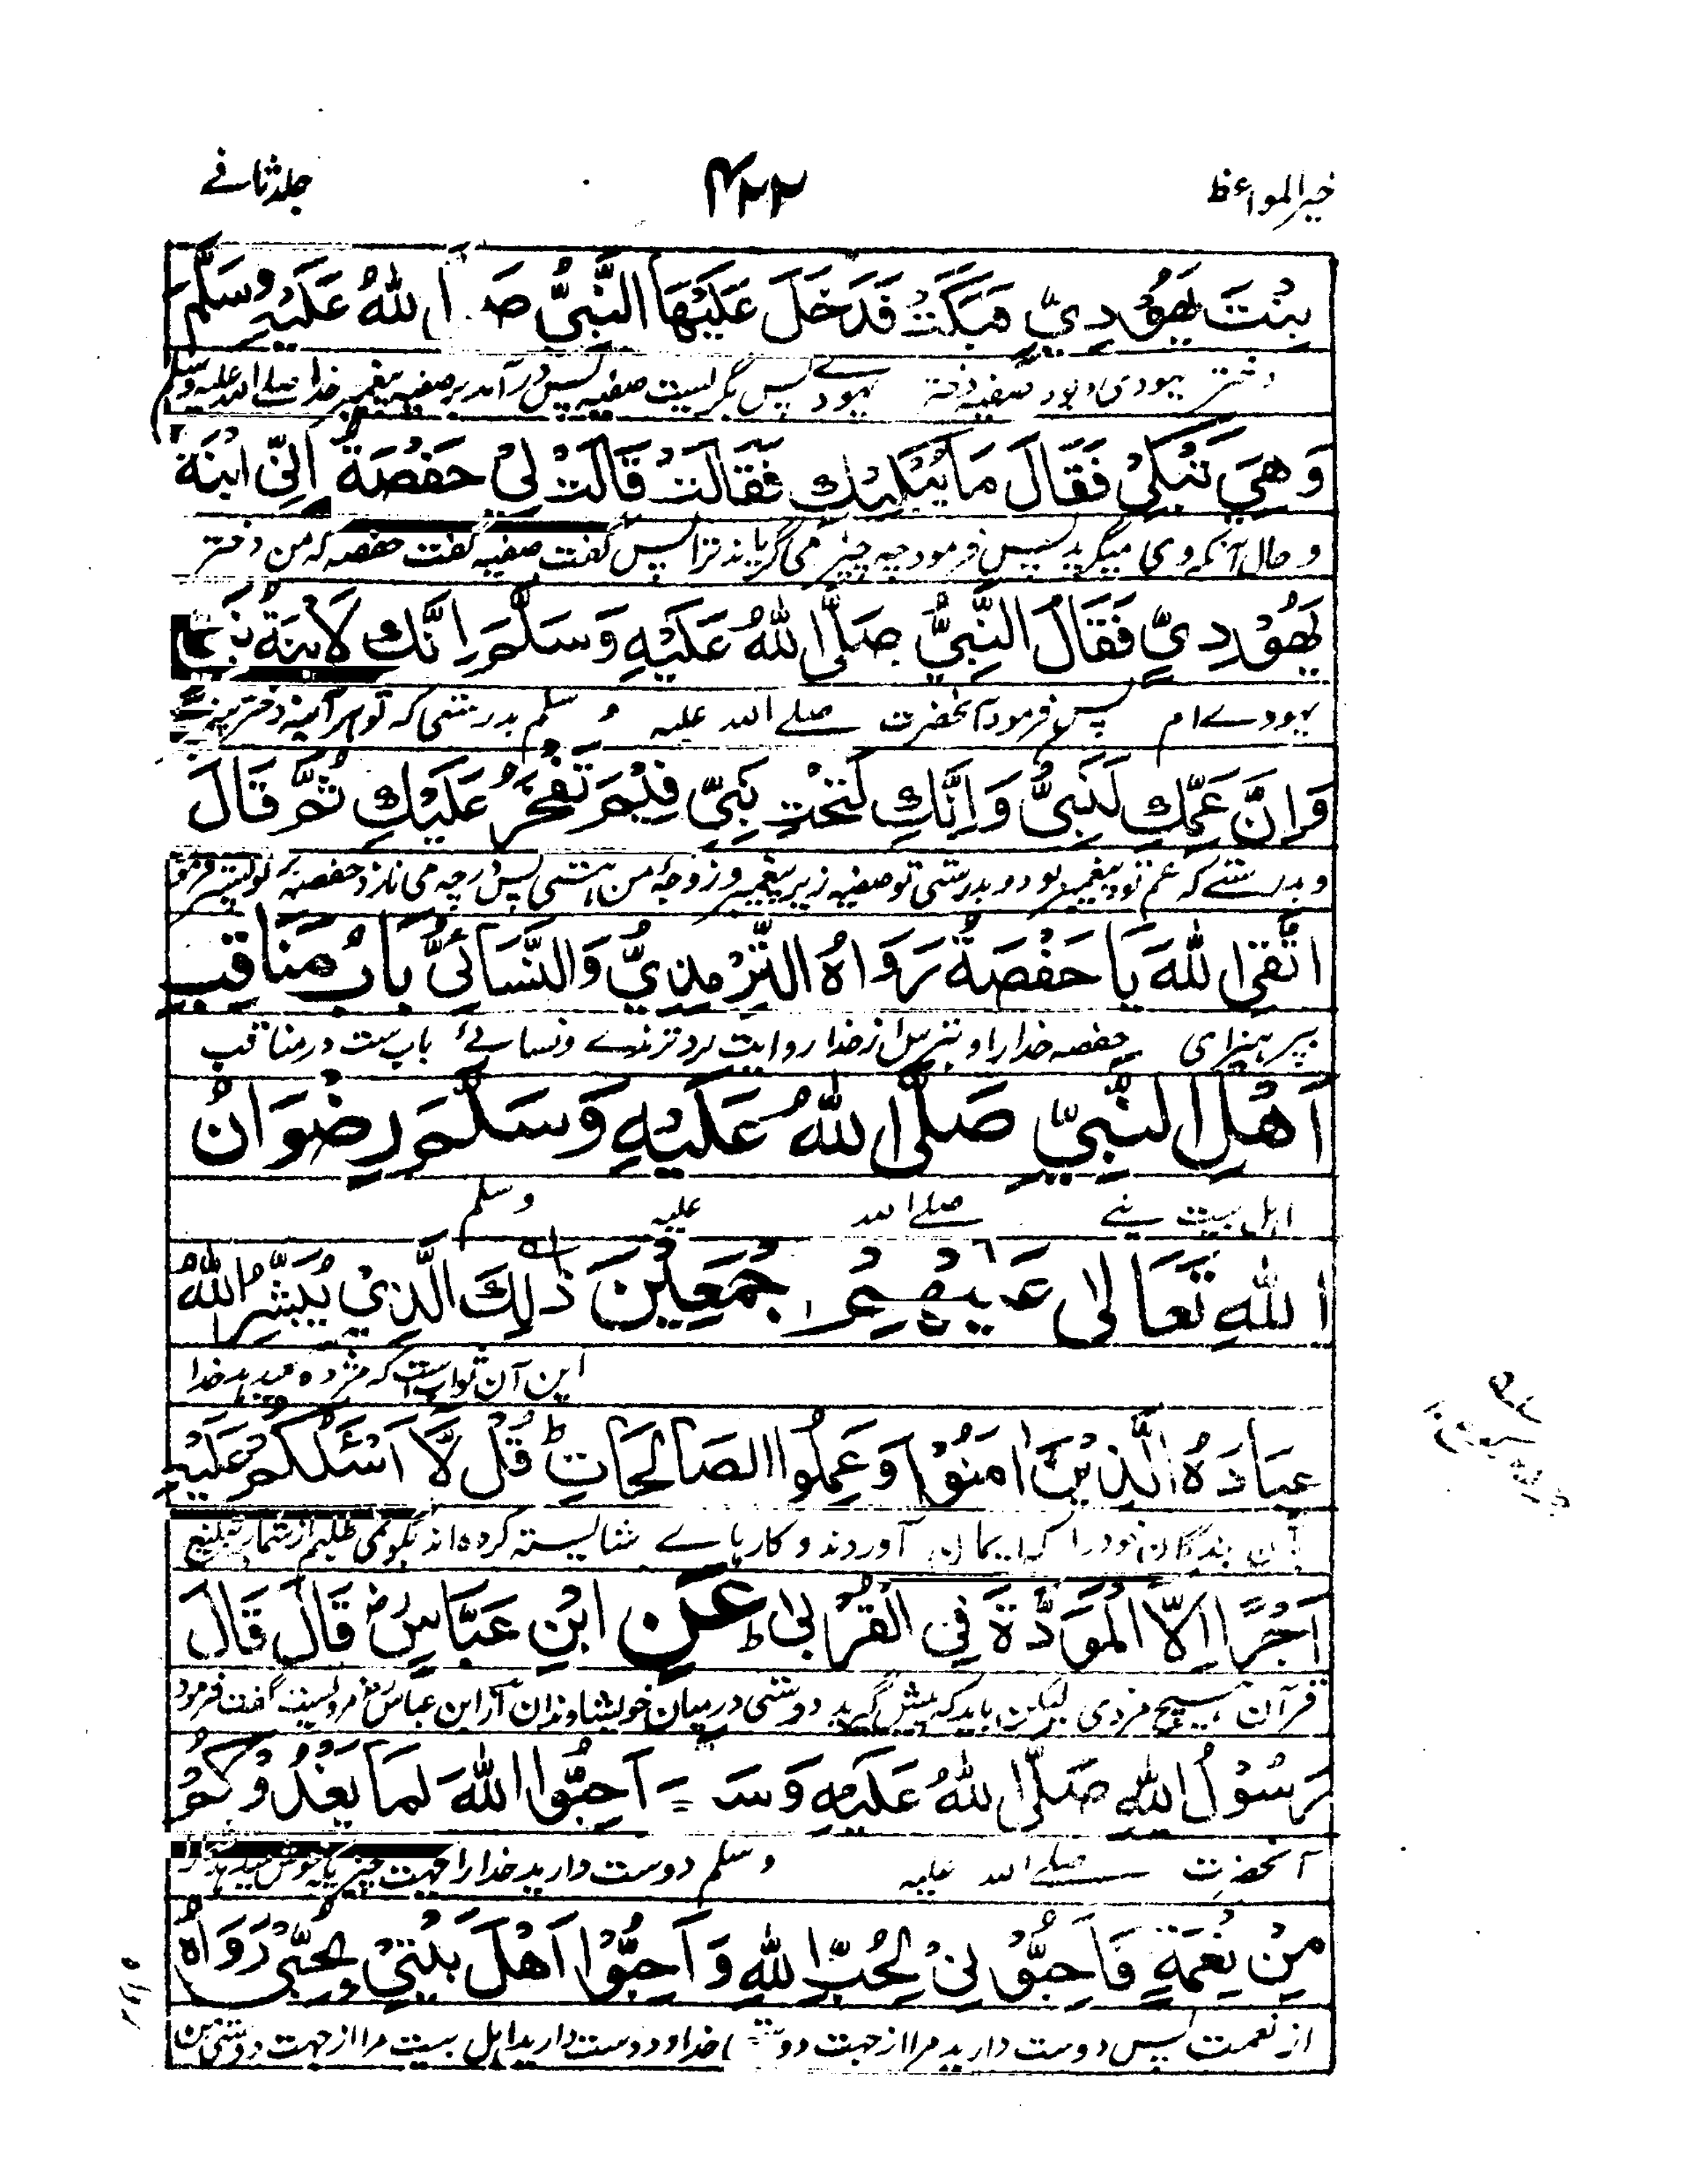 خیر المواعظ ۴۲۲ جلد ثانے
بِنْتَ يَهُوْدِيٍّ فَبَكَتْ فَدَخَلَ عَلَيْهَا النَّبِيُّ صَ اللهُ عَلَيْهِ وَسَلَّمَ
دختر یهودی صفیه دختر یهودے پس بگریست صفیه پس درآمد بر صفیه پیغمبر خدا صلے الله علیه وسلم
وَهِيَ تَبْكِيْ فَقَالَ مَا يُبْكِيْكِ فَقَالَتْ قَالَتْ لِيْ حَفْصَةُ اِنِّيْ ابْنَةُ
و حال آنکه وی میگرید پس فرمود چه چیز می گریاند ترا پس گفت صفیه گفت حفصه که من دختر
يَهُوْدِيٍّ فَقَالَ النَّبِيُّ صَلَّى اللهُ عَلَيْهِ وَسَلَّمَ اِنَّكِ لَابْنَةُ نَبِيٍّ
یهودے ام پس فرمود آنحضرت صلے الله علیه و سلم بدرستی که تو هر آئینه دختر پیغمبرے
وَاِنَّ عَمَّكِ لَنَبِيٌّ وَاِنَّكِ لَتَحْتَ نَبِيٍّ فَفِيْمَ تَفْخَرُ عَلَيْكِ ثُمَّ قَالَ
و بدرستے که عم تو پیغمبر بود و بدرستی تو صفیه زیر پیغمبر و زوجۀ من هستی پس در چه می نازد حفصه بر تو پستر فرمود
اتَّقِي اللهَ يَا حَفْصَةُ رَوَاهُ التِّرْمِذِيُّ وَالنَّسَائِيُّ بَابُ مَنَاقِبِ
بپرهیز ای حفصه خدا را و بترس از خدا روایت کرد ترمذے و نسائے باب ست در مناقب
اَهْلِ النَّبِيِّ صَلَّى اللهُ عَلَيْهِ وَسَلَّمَ رِضْوَانُ
اهل بیت نبے صلے الله علیه وسلم
اللهِ تَعَالٰى عَلَيْهِمْ اَجْمَعِيْنَ ذٰلِكَ الَّذِيْ يُبَشِّرُ اللهُ
این آن ثواب است که مژده میدهد خدا
عِبَادَهُ الَّذِيْنَ اٰمَنُوْا وَعَمِلُوا الصَّالِحَاتِ ط قُلْ لَّا اَسْئَلُكُمْ عَلَيْهِ
بآن بندگان خود را که ایمان آوردند و کارهاے شایسته کرده اند بگو نمی طلبم از شما بر تبلیغ
اَجْرًا اِلَّا الْمَوَدَّةَ فِي الْقُرْبٰى ط عَنِ ابْنِ عَبَّاسٍ رض قَالَ قَالَ
قرآن هیچ مزدی لیکن باید که پیش گیرید دوستی درمیان خویشاوندان از ابن عباس رض مرویست گفت فرمود
رَسُوْلُ اللهِ صَلَّى اللهُ عَلَيْهِ وَسَـ اَحِبُّوا اللهَ لِمَا يَغْذُوْكُمْ
آنحضرت صلے الله علیه وسلم دوست دارید خدا را جهت چیزیکه
مِنْ نِعْمَةٍ فَاَحِبُّوْنِيْ لِحُبِّ اللهِ وَاَحِبُّوْا اَهْلَ بَيْتِيْ لِحُبِّيْ رَوَاهُ
از نعمت پس دوست دارید مرا از جهت دوستی خدا و دوست دارید اهل بیت مرا از جهت دوستی من